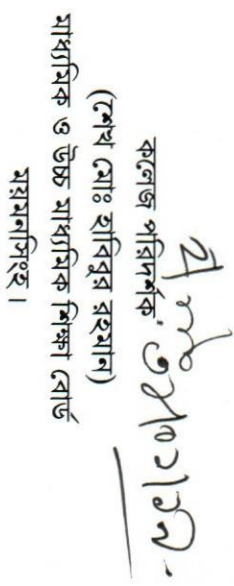 কলেজ পরিদর্শক
(শেখ মোঃ হাবিবুর রহমান)
মাধ্যমিক ও উচ্চ মাধ্যমিক শিক্ষা বোর্ড
ময়মনসিংহ।